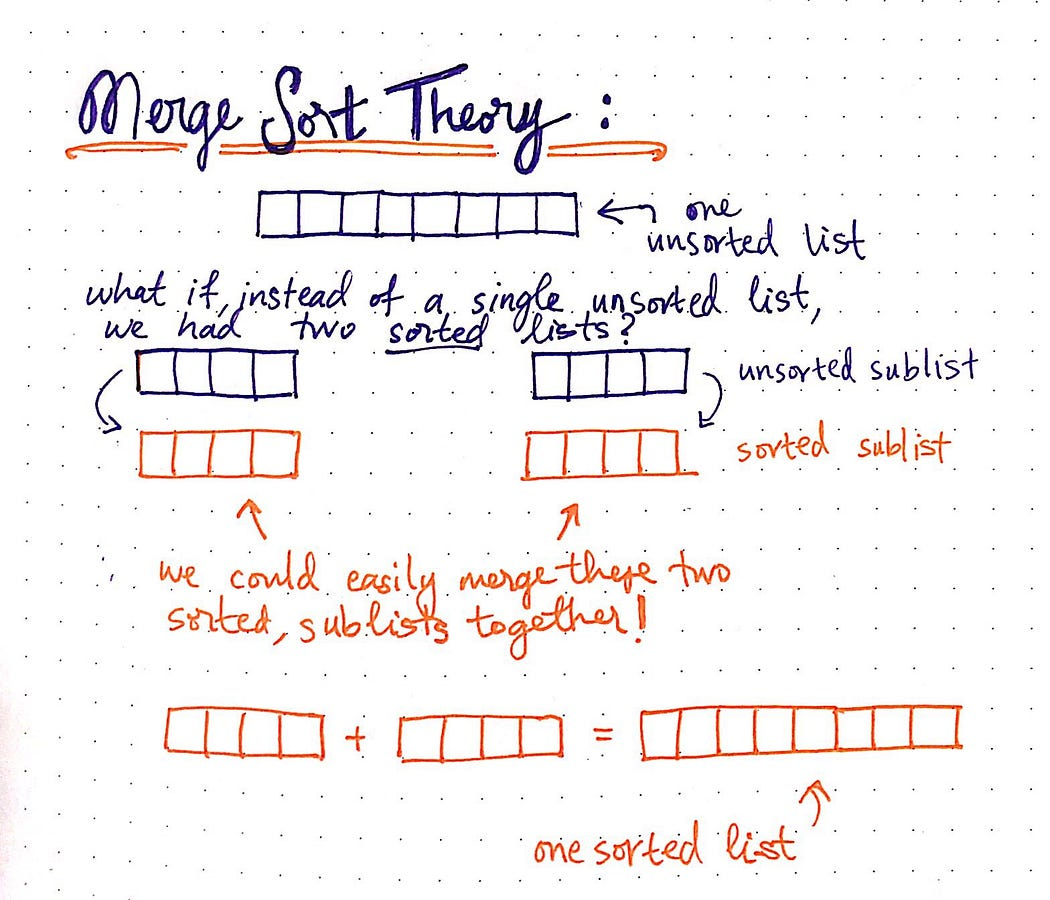 Merge Sort Theory :
one
unsorted list
what if, instead of a single unsorted list,
we had two sorted lists?
unsorted sublist
sorted sublist
we could easily merge these two
sorted, sublists together!
+ =
one sorted list